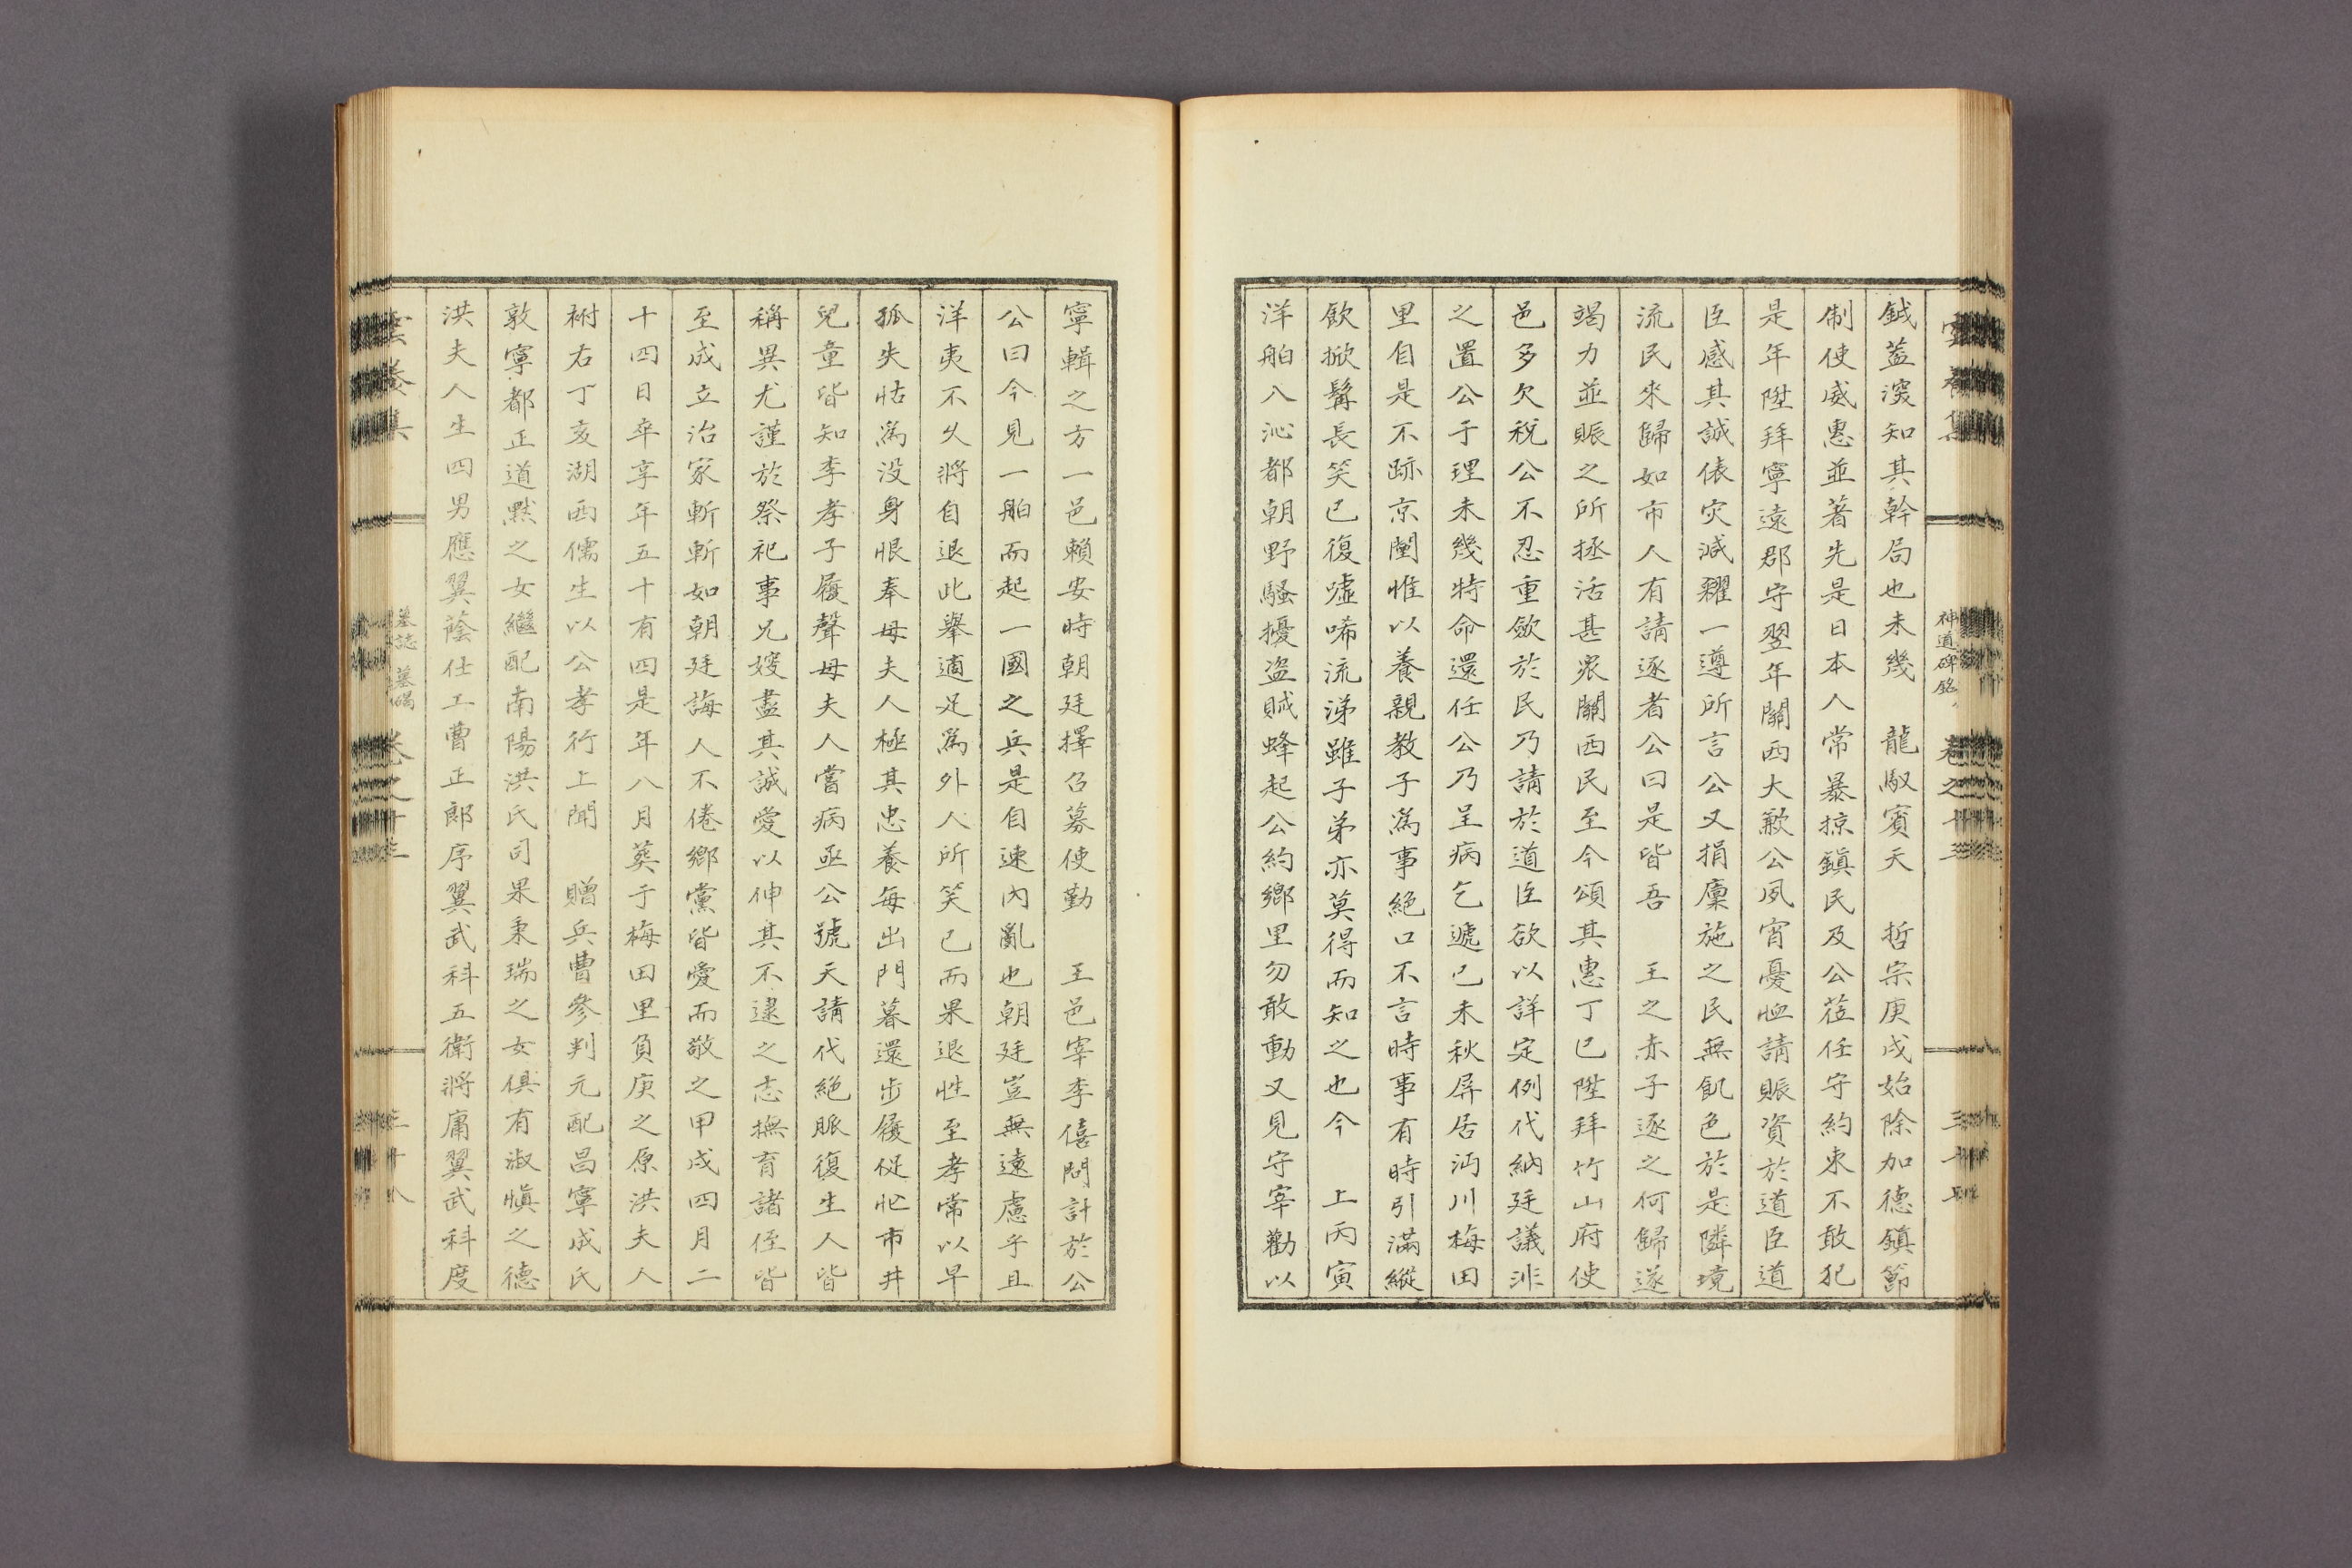 鉞蓋深知其幹局也未幾 龍馭賓天 哲宗庚戌始除加德鎮節
制使威惠並著先是日本人常暴掠鎮民及公莅任守約束不敢犯
是年陞拜寧遠郡守翌年關西大歉公夙宵憂恤請賑資於道臣道
臣感其誠俵灾減糶一遵所言公又捐廩施之民無飢色於是隣境
流民來歸如市人有請逐者公曰是皆吾 王之赤子逐之何歸遂
竭力並賑之所拯活甚衆關西民至今頌其惠丁巳陞拜竹山府使
邑多欠稅公不忍重斂於民乃請於道臣欲以詳定例代納廷議非
之置公于理未幾特命還任公乃呈病乞遞己未秋屏居沔川梅田
里自是不跡京闉惟以養親教子爲事絕口不言時事有時引滿縱
飮掀髯長笑已復噓唏流涕雖子弟亦莫得而知之也今 上丙寅
洋舶入沁都朝野騷擾盜賊蜂起公約鄕里勿敢動又見守宰勸以
神道碑銘 卷之十三
寧輯之方一邑賴安時朝廷擇召募使勤 王邑宰李僖問計於公
公曰今見一舶而起一國之兵是自速內亂也朝廷豈無遠慮乎且
洋夷不久將自退此擧適足爲外人所笑已而果退性至孝常以早
孤失怙爲没身恨奉母夫人極其忠養每出門暮還步履促忙市井
兒童皆知李孝子履聲母夫人嘗病亟公號天請代絕脈復生人皆
稱異尤謹於祭祀事兄嫂盡其誠愛以伸其不逮之志撫育諸侄皆
至成立治家斬斬如朝廷誨人不倦鄕黨皆愛而敬之甲戌四月二
十四日卒享年五十有四是年八月葬于梅田里負庚之原洪夫人
祔右丁亥湖西儒生以公孝行上聞 贈兵曹參判元配昌寧成氏
敦寧都正道默之女繼配南陽洪氏司果秉瑞之女俱有淑愼之德
洪夫人生四男應翼蔭仕工曹正郎序翼武科五衛將庸翼武科度
墓誌 墓碣 卷之十三